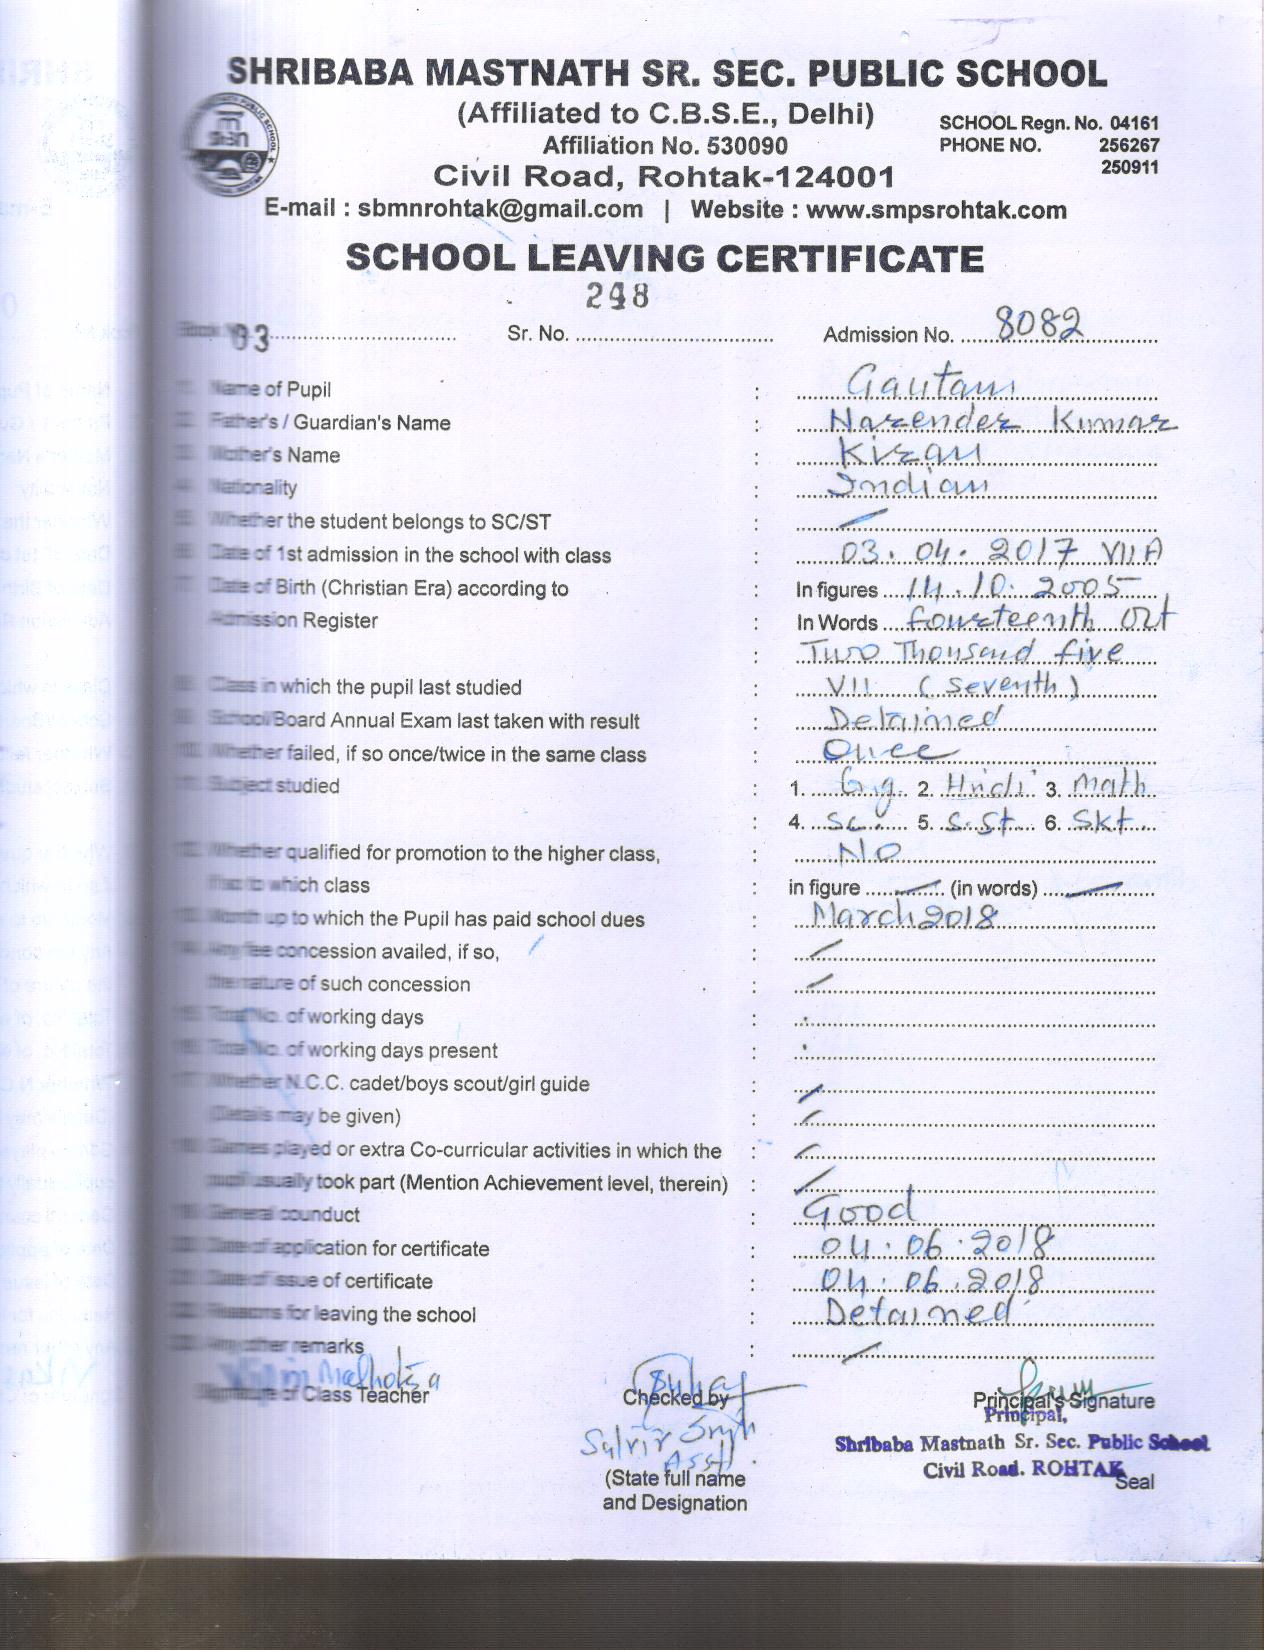 SHRIBABA MASTNATH SR. SEC. PUBLIC SCHOOL
(Affiliated to C.B.S.E., Delhi)
Affiliation No. 530090
SCHOOL Regn. No. 04161
PHONE NO. 256267
250911
Civil Road, Rohtak-124001
E-mail : sbmnrohtak@gmail.com | Website : www.smpsrohtak.com
SCHOOL LEAVING CERTIFICATE
03 Sr. No. 248 Admission No. 8082
Name of Pupil : Gautam
Father's / Guardian's Name : Narender Kumar
Mother's Name : Kiran
Nationality : Indian
Whether the student belongs to SC/ST :
Date of 1st admission in the school with class : 03.04.2017 VII A
Date of Birth (Christian Era) according to : In figures 14.10.2005
Admission Register : In Words fourteenth Oct
: Two Thousand five
Class in which the pupil last studied : VII (Seventh)
School/Board Annual Exam last taken with result : Detained
Whether failed, if so once/twice in the same class : Once
Subject studied : 1. Eng. 2. Hindi 3. Math
: 4. Sc. 5. S.St 6. Skt
Whether qualified for promotion to the higher class, : No
If so to which class : in figure (in words)
Month up to which the Pupil has paid school dues : March 2018
Any fee concession availed, if so, :
the nature of such concession :
Total No. of working days :
Total No. of working days present :
Whether N.C.C. cadet/boys scout/girl guide :
(Details may be given) :
Games played or extra Co-curricular activities in which the :
pupil usually took part (Mention Achievement level, therein) :
General counduct : Good
Date of application for certificate : 04.06.2018
Date of issue of certificate : 04.06.2018
Reasons for leaving the school : Detained
Any other remarks :
Malhotra
Signature of Class Teacher
Checked by
Principal's Signature
Principal,
Shribaba Mastnath Sr. Sec. Public School
Civil Road. ROHTAK
Seal
Singh
Asstt
(State full name
and Designation